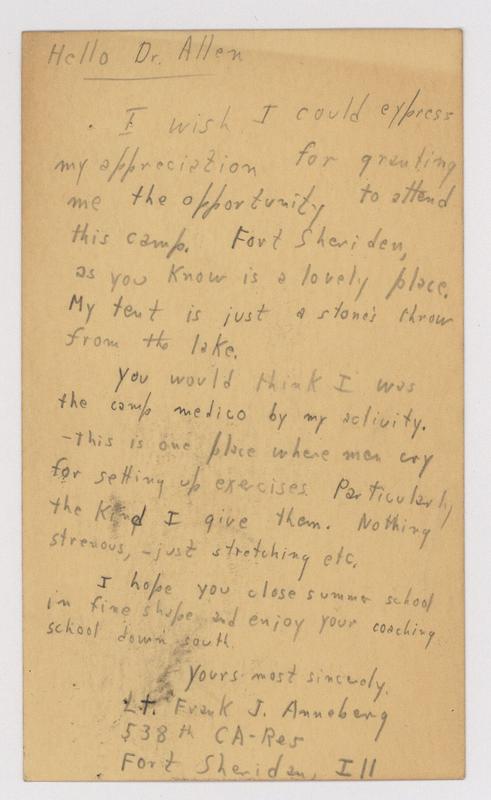 Hello Dr. Allen
I wish I could express
my appreciation for granting
me the opportunity to attend
this camp. Fort Sheriden,
as you know is a lovely place.
My tent is just a stone's throw
from the lake.
You would think I was
the camp medico by my activity.
-this is one place where men cry
for setting up exercises. Particularly
the kind I give them. Nothing
strenous, -just stretching etc.
I hope you close summer school
in fine shape and enjoy your coaching
school down south.
Yours most sincerely.
Lt. Frank J. Anneberg
538th CA-Res
Fort Sheridan, Ill